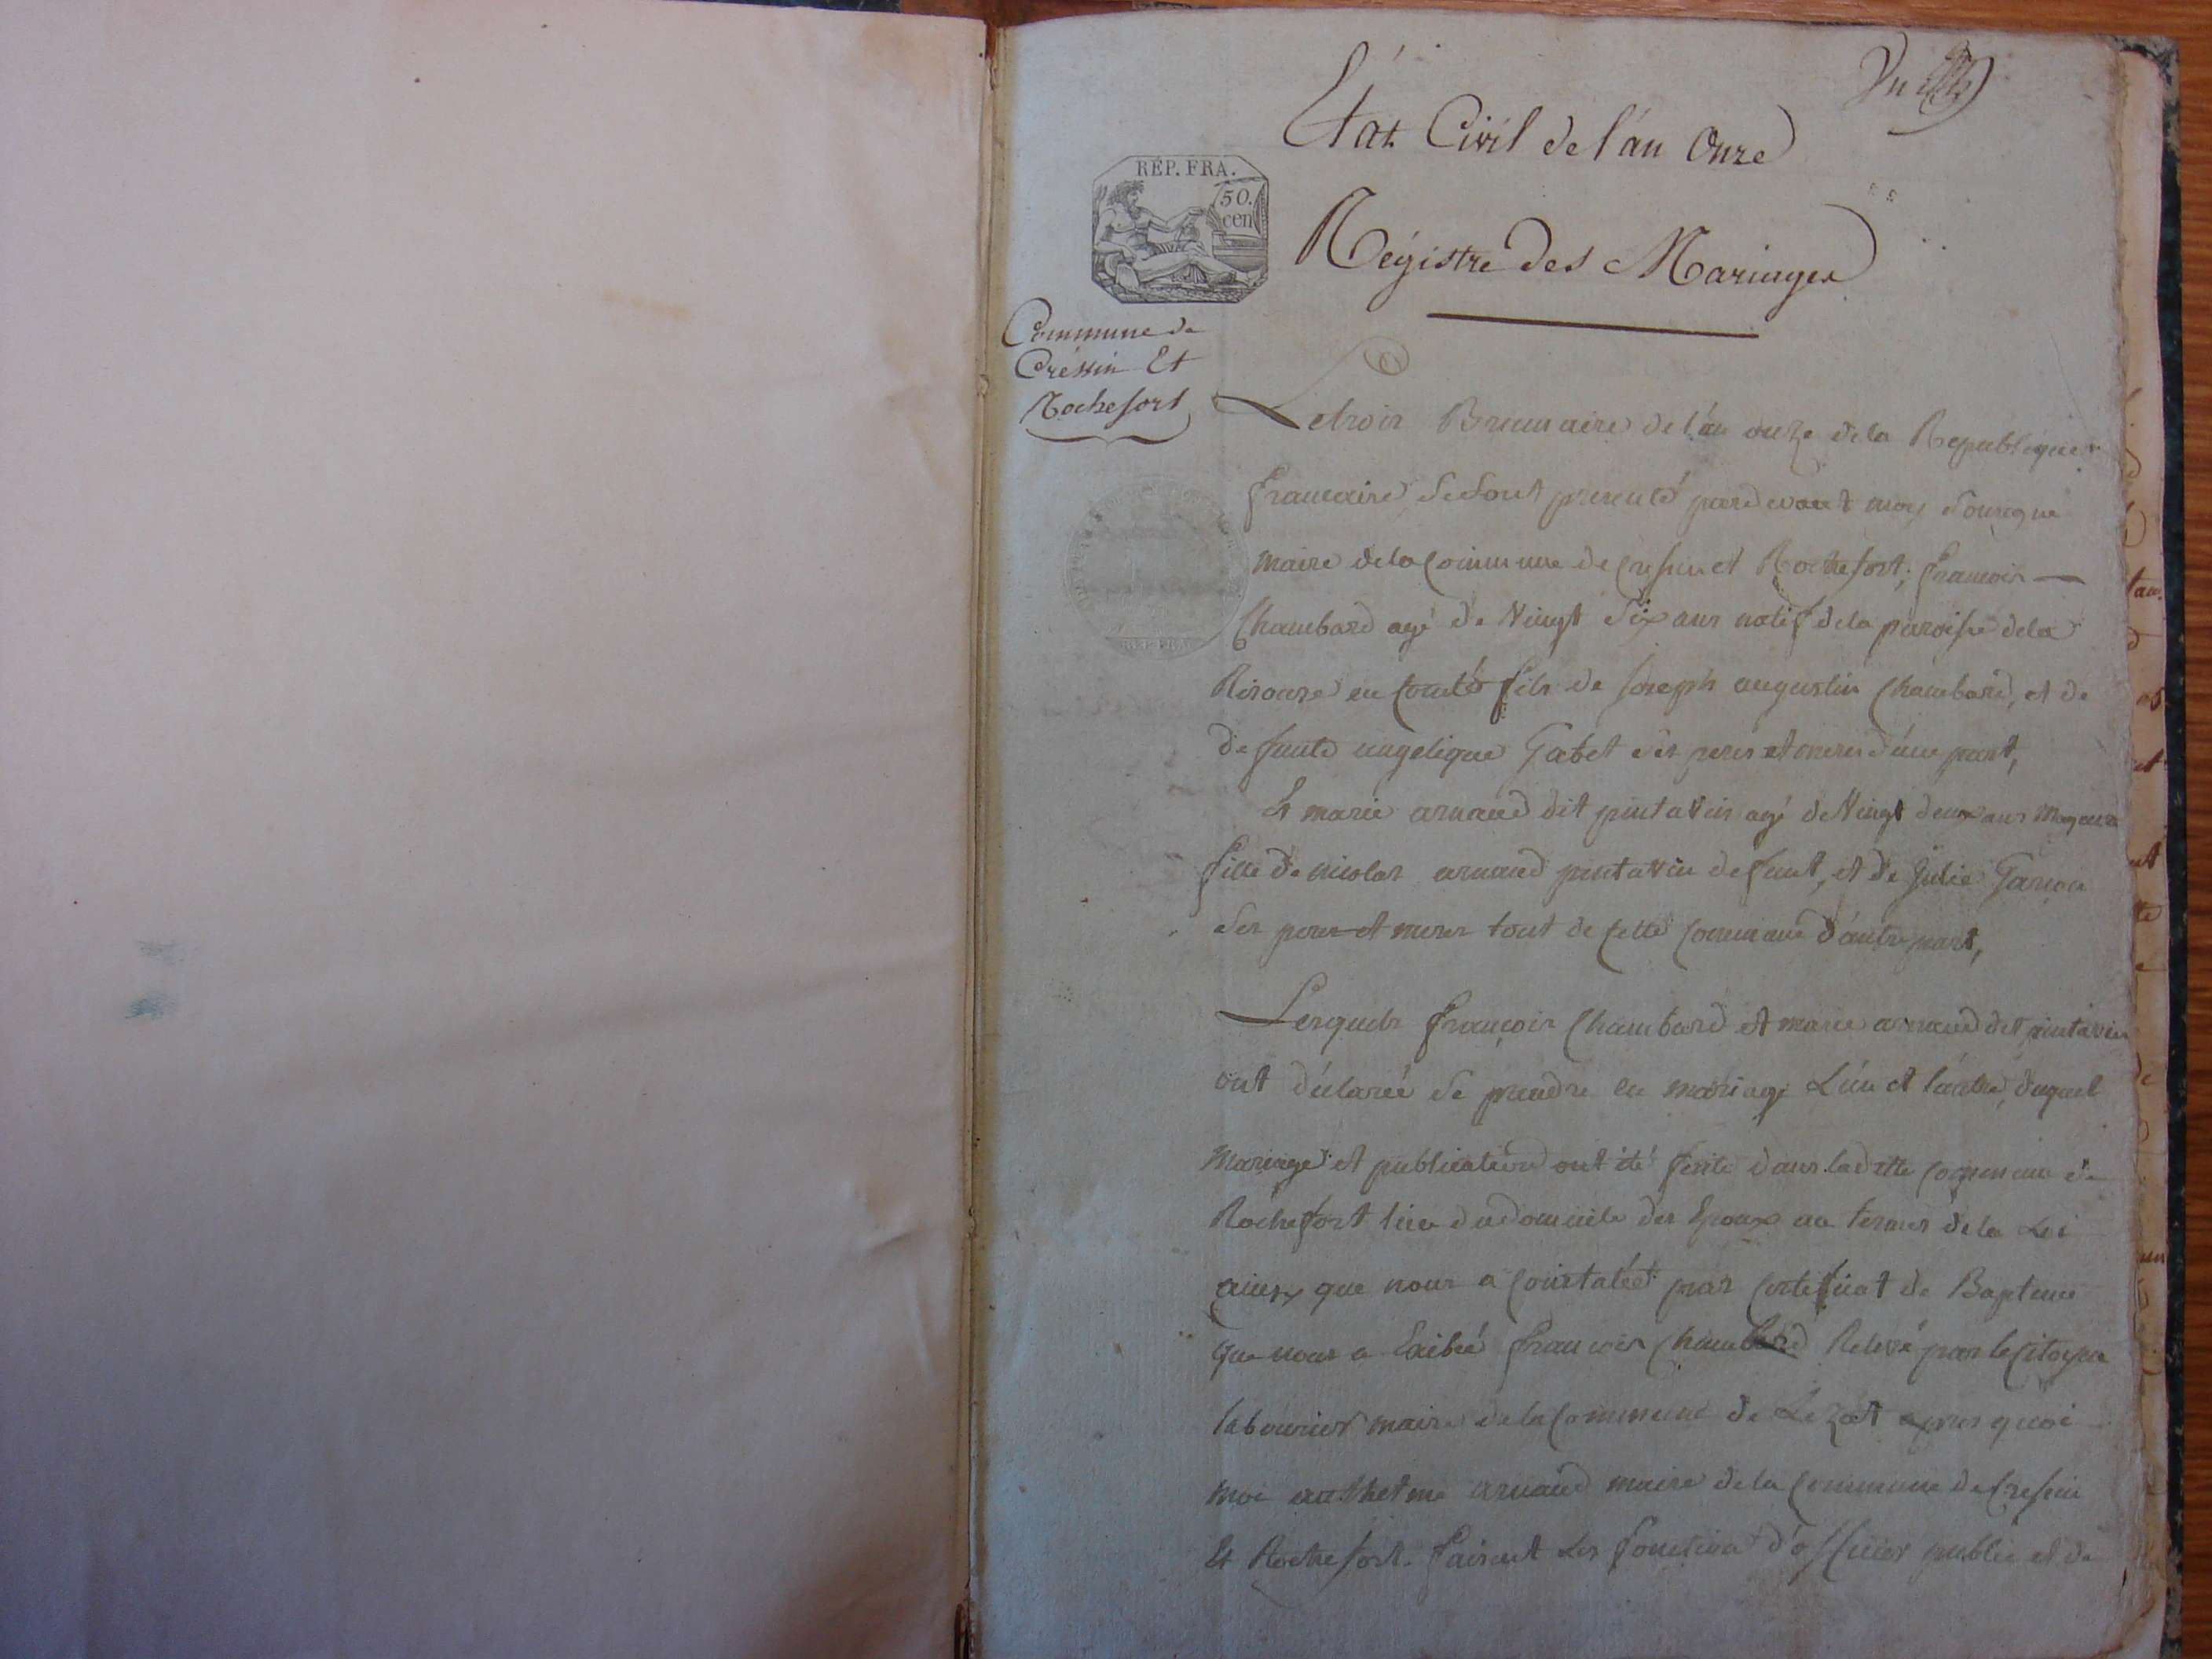 Un
Etat Civil de l'an Onze
REP. FRA.
50.
cen
Régistre des Mariages
Commune de
Créssin Et
Rochefort
Le trois Brumaire de l'an onze de la Republique
francaise se sont presenté pard evant moy Sousigne
maire de la Commune de Cressin et Rochefort, francois
Chambard agé de Vingt Six ans natif de la paroisse de la
en Comté fils de Joseph augustin Chambard, et de
defunte angelique Gabet ses peres et meres d'une part,
Et marie arnaud dit pintavin agé de Vingt deux ans
fille de nicolas arnaud pintavin defunt, et de Julie
ses peres et meres tout de cette Commune d'autre part,
Lesquels françois Chambard et marie arnaud dit pintavin
ont déclarée se prendre en mariage L'un et l'autre, duquel
Mariage et publication ont été ferite dans ladite Commune de
Rochefort lieu du domicile des Epoux au termes de la Loi
ainsy que nous a Constateet par Certeficat de Bapteme
que nous a francois Chambard Relevé par le Citoyen
labourier maire de la Commune de Lezat apres quoi
moi anthelme arnaud maire de la Commune de Cressin
Et Rochefort. faisant Les fonction d'officier public et de
REP. FRA.